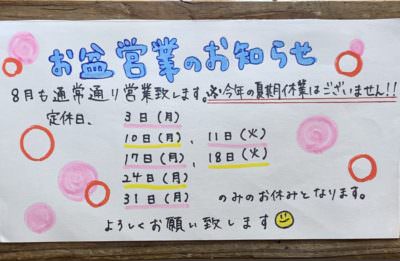 お盆営業のお知らせ
8月も通常通り営業致します。※今年の夏期休業はございません!!
定休日、 3日(月)
10日(月)、11日(火)
17日(月)、18日(火)
24日(月)
31日(月) のみのお休みとなります。
よろしくお願い致します